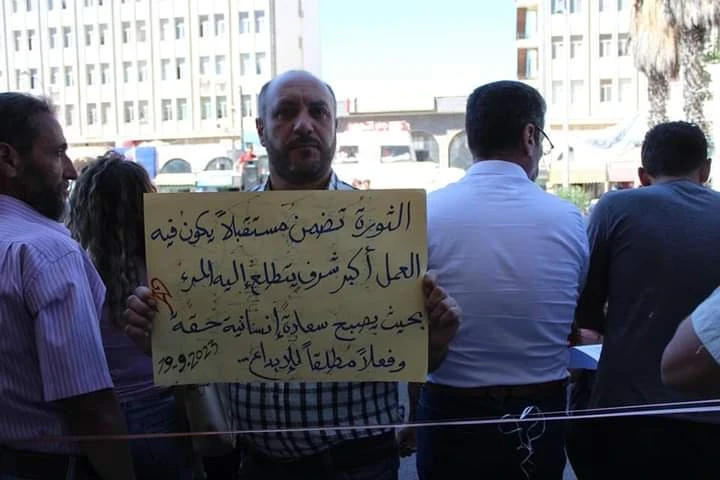 الثورة تضمن مستقبلاً يكون فيه
العمل أكبر شرف يتطلع إليه المرء
بحيث يصبح سعادة إنسانية حقة
وفعلاً مطلقاً للإبداع...
19-9-2023